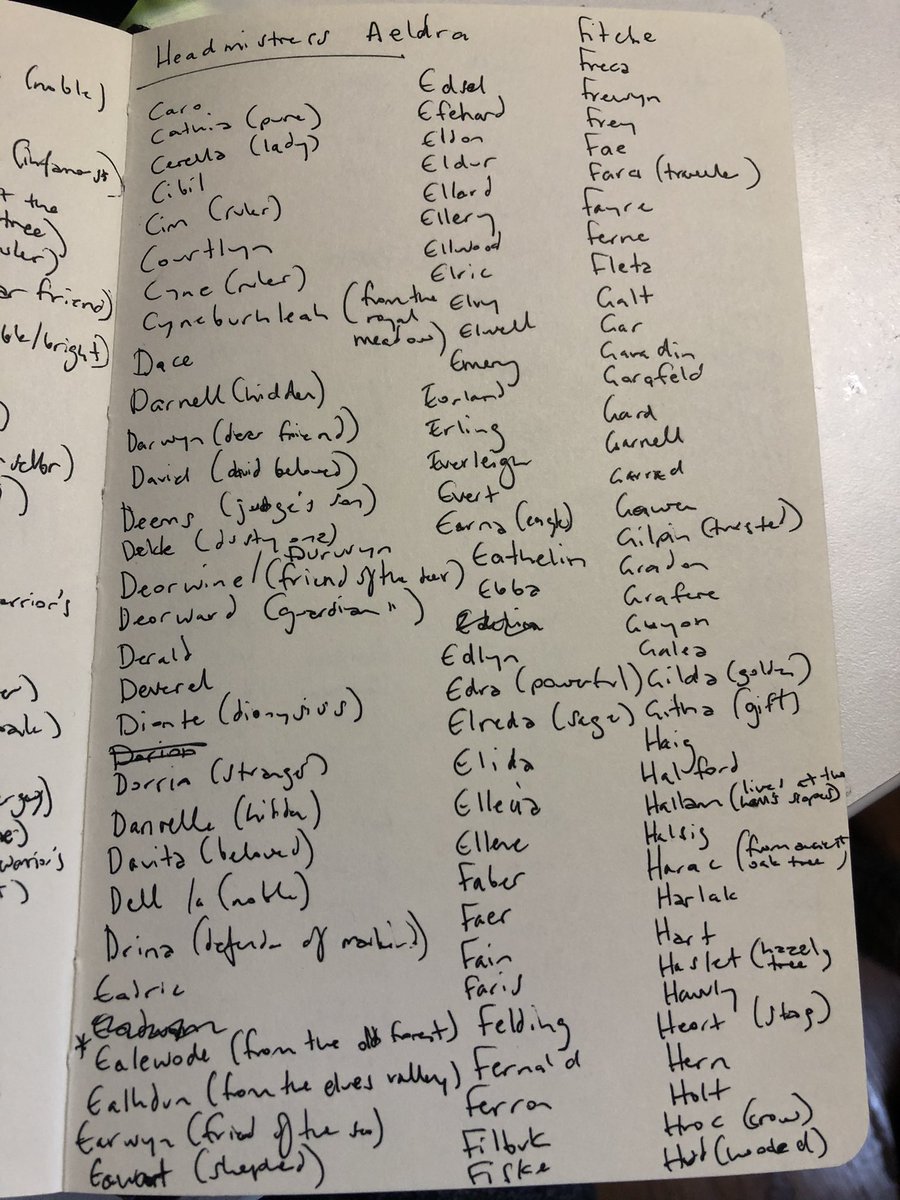 (noble)
the
tree)
friend)
ble/bright)
Headmistress Aeldra
Caro
Cathia (pure)
Cerella (lady)
Cibil
Cim (ruler)
Courtlyn
Cyne (ruler)
Cyneburhleah (from the
royal
meadow)
Dace
Darnell (hidden)
Darwyn (deer friend)
David (beloved)
Deems (judge's son)
Dekk (dusty one)
Durwyn
Deorwine / (friend of the deer)
Deorward (guardian ")
Derald
Deverel
Dionte (dionysius)
Dorrin (stranger)
Danrelle (hidden)
Davita (beloved)
Dell /a (noble)
Drina (defender of mankind)
Ealric
* Ealewode (from the old forest)
Ealhdun (from the elves valley)
Earwyn (friend of the sea)
(shepherd)
Edsel
Efehard
Eldon
Eldur
Ellard
Ellery
Ellwood
Elric
Elvy
Elwell
Emery
Eorland
Erling
Everleigh
Evert
Earna (eagle)
Eathelin
Ebba
Edlyn
Edra (powerful)
Elreda (sage)
Elida
Ellette
Faber
Faer
Fain
Faris
Felding
Fernald
Ferron
Fiske
Fitche
Freca
Frewyn
Frey
Fae
Fara (traveler)
Fayre
Ferne
Fleta
Galt
Gar
Garadin
Garafeld
Gard
Garnell
Garrad
Gawen
Gilpin (trusted)
Graden
Guyon
Galea
Gilda (golden)
Githa (gift)
Haig
Halford
Hallam (lives at the
slopes)
Halsig
Harac (from ancient
oak tree)
Harlak
Hart
Haslet (hazel
tree)
Hawly
Heort (stag)
Hern
Holt
Hroc (crow)
Hud (hooded)